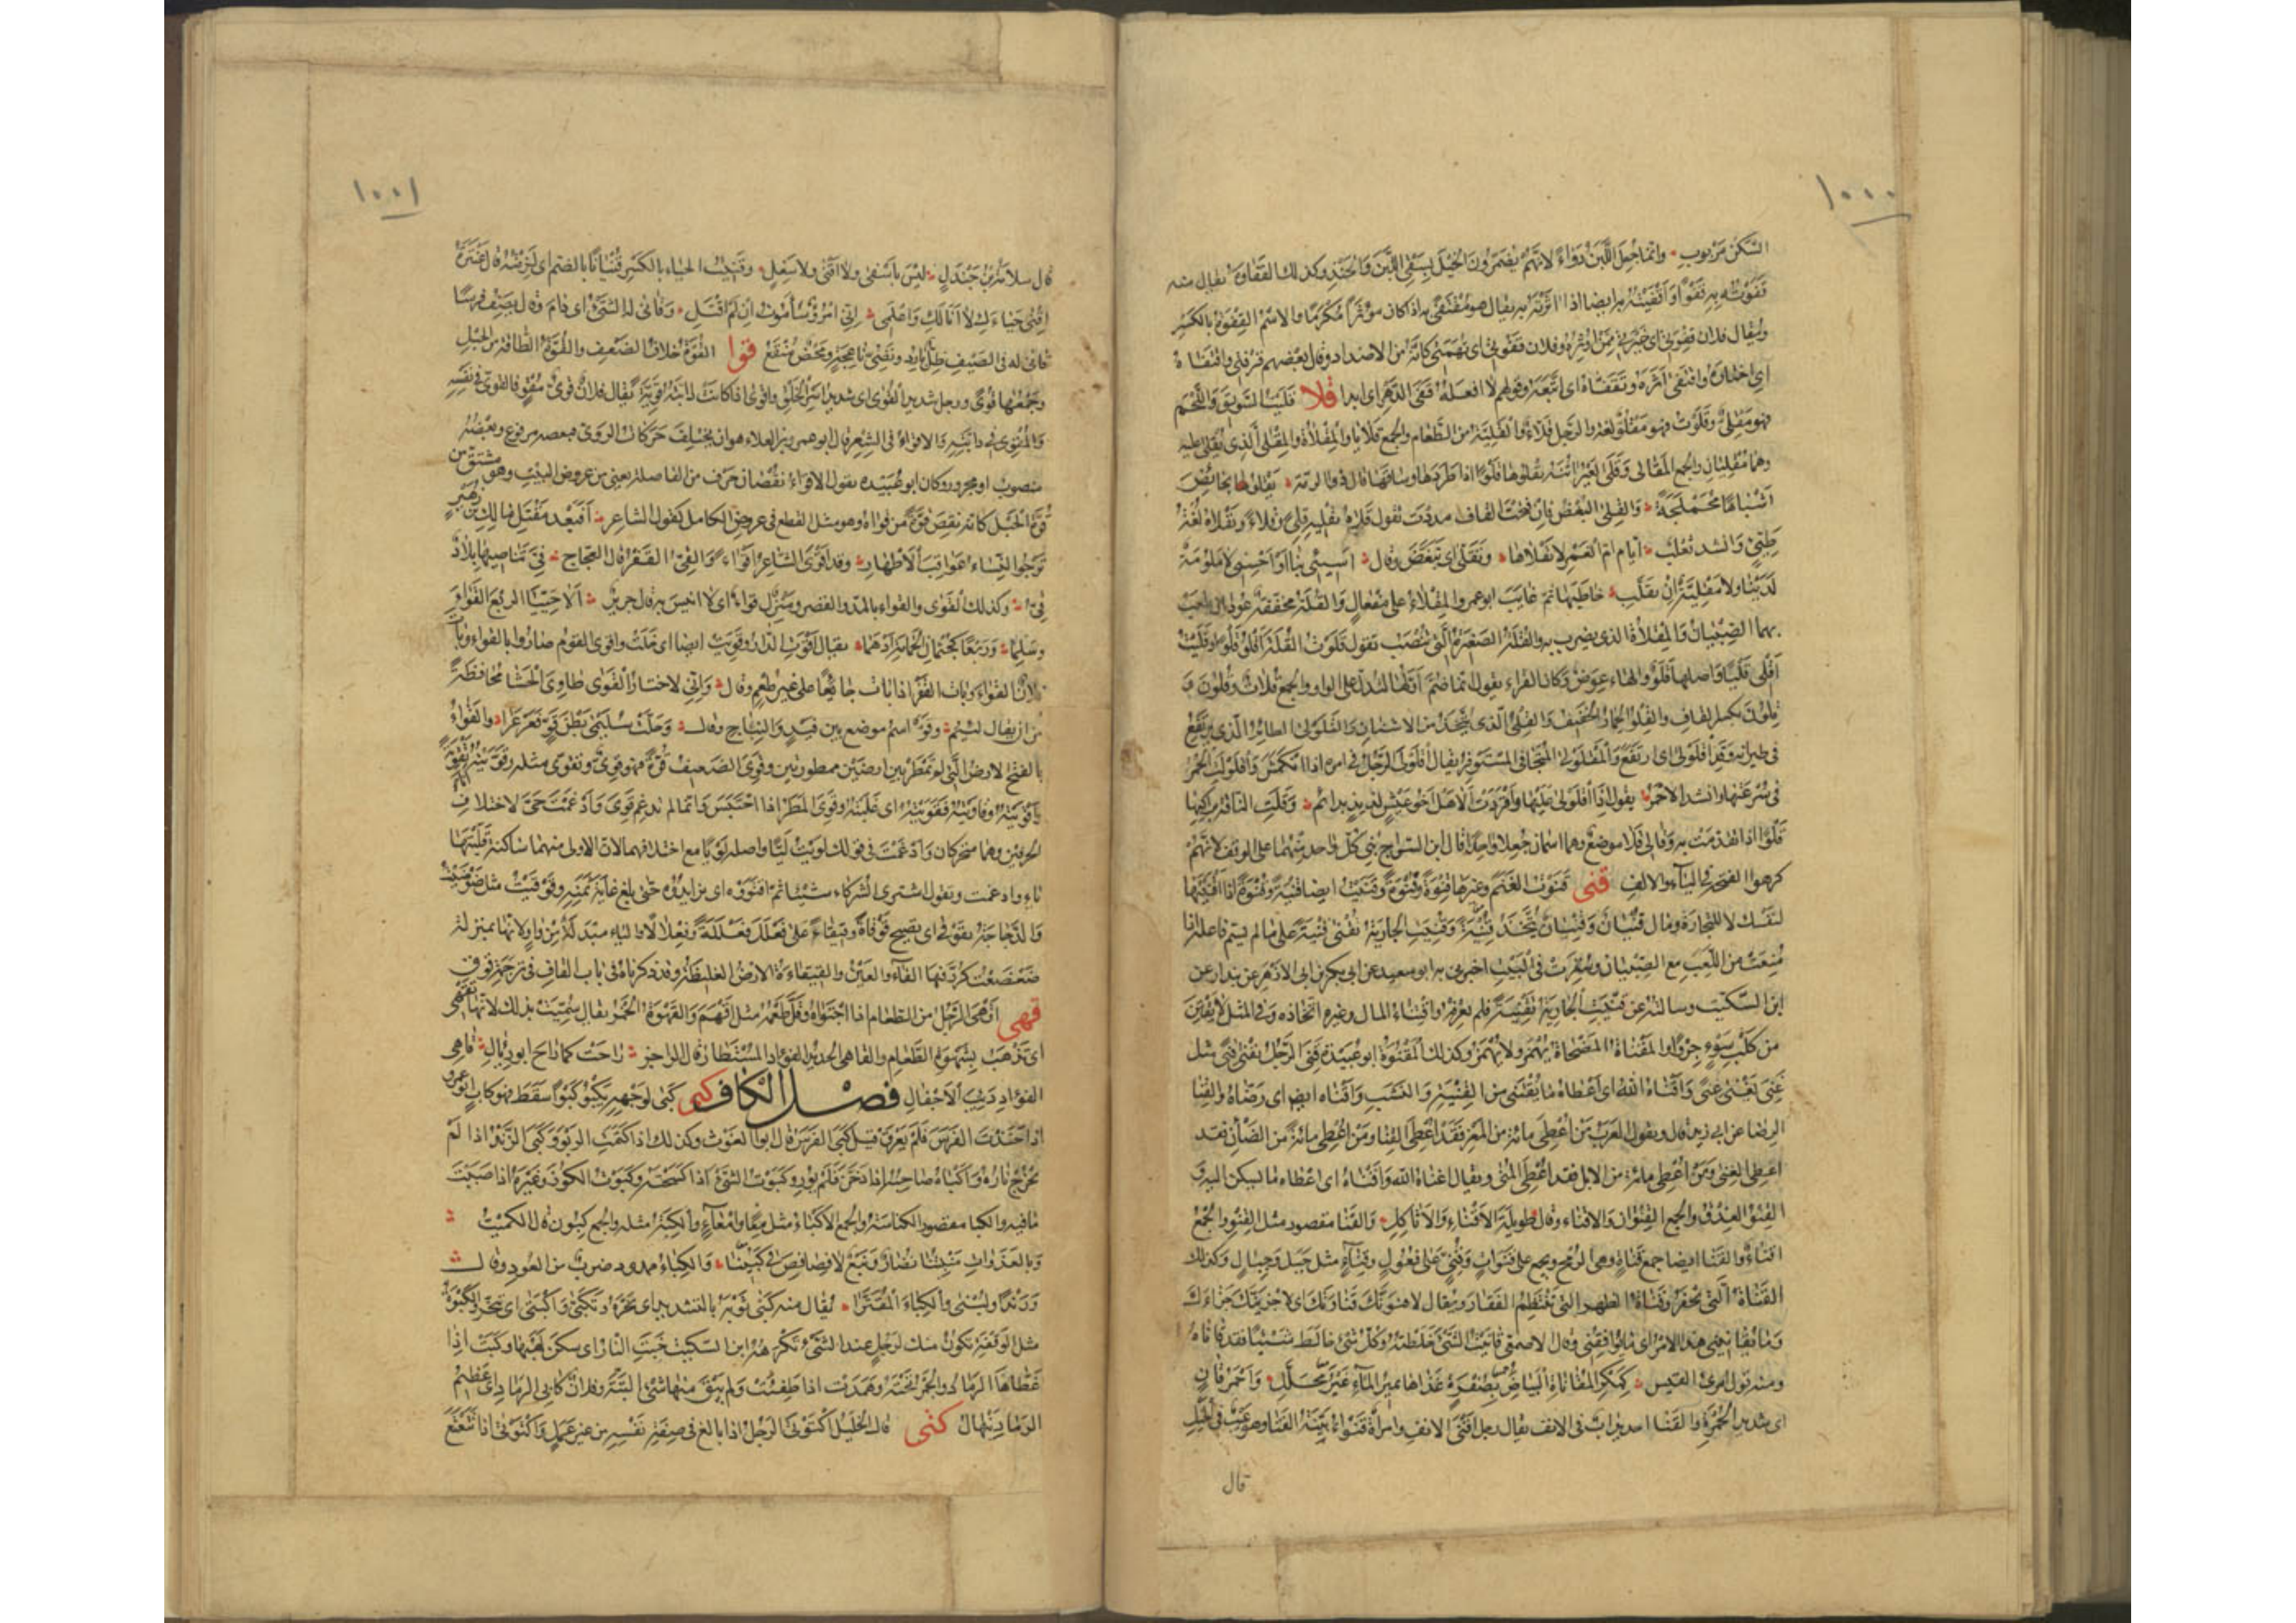 ١٠٠٠
السكن مربوب وانما جعل اللبن دواء لانهم يضمرون الخيل بسقى اللبن والحنذ وكذلك القفاوة يقال منه
قفوته به قفوا واقفيته به ايضا اذا اثرته به يقال هو مقتفى به اذا كان مؤثرا مكرما والاسم القفوة بالكسر
ويقال فلان قفوتى اى خيرتى ممن اوثره وفلان قفوتى اى تهمتى كانه من الاضداد وقال بعضهم قرفتى واقتفاه
اى اختاره واقتفى اثره وتقفاه اى اتبعه وقولهم لا افعله قفى الدهر اى ابدا قلا قليت السويق واللحم
فهو مقلى وقلوت فهو مقلو لغة والرجل قلاء والقلية من الطعام والجمع قلايا والمقلاة والمقلى الذى يقلى عليه
وهما مقليان والجمع المقالى وقلى العير اتنه يقلوها قلوا اذا طردها وساقها قال ذو الرمة يقلو نحائص
اشباها محملجة والقلى البغض فان فتحت القاف مددت تقول قلاه يقليه قلى وقلاء ويقلاه لغة
طيئ وانشد ثعلب ايام ام الغمر لا نقلاها وتقلى اى تبغض وقال اسيئى بنا او احسنى لا ملومة
لدينا ولا مقلية ان تقلت خاطبها ثم غايب ابو عمرو المقلاء على مفعال والقلة مخففة عودان يلعب
بهما الصبيان والمقلاة الذى يضرب به والقلة الصغيرة التى تنصب تقول قلوت القلة اقلو قلوا وقليت
اقلى قليا واصلها قلو والهاء عوض وكان الفراء يقول انما ضم اولها لتدل على الواو والجمع قلات وقلون و
قلون بكسر القاف والقلو الحمار الخفيف والقلى الذى يتخذ من الاشنان والقلولى الطائر الذى يرتفع
فى طيرانه وقد اقلولى اى ارتفع والمقلولى المتجافى المستوفز يقال اقلولى الرجل فى امره اذا انكمش واقلولت الحمر
فى سرعتها وانشد الاحمر يقول اذا اقلولى عليها واقردت الا هل اخو عيش لذيذ بدائم وقلت الناقة براكبها
قلوا اذا تقدمت به وقالى قلا موضع وهما اسمان جعلا واحدا قال ابن السراج بنى كل واحد منهما على الوقف لانهم
كرهوا الفتحة فى الياء والالف قنى قنوت الغنم وغيرها قنوة وقنوة وقنيت ايضا قنية وقنية اذا اقتنيتها
لنفسك لا للتجارة ومال قنيان وقنيان يتخذ قنية وقنيت الجارية تقنى قنية على ما لم يسم فاعله اذا
منعت من اللعب مع الصبيان وسترت فى البيت اخبرنى به ابو سعيد عن ابى بكر بن ابى الازهر عن بندار عن
ابن السكيت وسالته عن قنيت الجارية تقنية فلم يعرفه واقتناء المال وغيره اتخاذه وفى المثل لا تقتن
من كلب سوء جروا والمقناة المضحاة يهمز ولا يهمز وكذلك المقنوة ابو عبيدة قنى الرجل يقنى قنى مثل
غنى يغنى غنى واقناه الله اى اعطاه ما يقتنى من القنية والنشب واقناه ايضا اى رضاه والقنا
الرضا عن ابى زيد قال وتقول العرب من اعطى مائة من المعز فقد اعطى القنا ومن اعطى مائة من الضان فقد
اعطى الغنى ومن اعطى مائة من الابل فقد اعطى المنى ويقال اغناه الله واقناه اى اعطاه ما يسكن اليه و
القنو العذق والجمع القنوان والاقناء وقال طويلة الاقناء والاثاكل والقنا مقصور مثل القنو والجمع
اقناء والقنا ايضا جمع قناة وهى الرمح ويجمع على قنوات وقنى على فعول وقناء مثل جبل وجبال وكذلك
القناة التى تحفر وقناة الظهر التى تنتظم الفقار ويقال لاقنونك قناوتك اى لاجزينك جزاءك
وما يقانينى هذا الامر اى ما يوافقنى وقال الاصمعى قانيت الشئ خلطته وكل شئ خالط شيئا فقد قاناه
ومنه قول امرئ القيس كبكر المقاناة البياض بصفرة غذاها نمير الماء غير محلل واحمر قان
اى شديد الحمرة والقنا احديداب فى الانف يقال رجل اقنى الانف وامراة قنواء بينة القنا وهو عيب فى الخيل
قال
١٠٠١
قال سلامة بن جندل ليس باسفى ولا اقنى ولا سغل وقنيت الحياء بالكسر قنيانا بالضم اى لزمته قال عنترة
اقنى حياءك لا ابا لك واعلمى انى امرؤ سأموت ان لم اقتل وقانى له الشئ اى دام وقال يصف فرسا
قانى له فى الصيف ظل بارد ونصى ناعجة ومحض منقع قوا القوة خلاف الضعيف والقوة الطاقة من الحبل
وجمعها قوى ورجل شديد القوى اى شديد اسر الخلق واقوى اذا كانت دابته قوية يقال فلان قوى مقو فالقوى فى نفسه
والمقوى فى دابته والاقواء فى الشعر قال ابو عمرو بن العلاء هو ان يختلف حركات الروى فبعضه مرفوع وبعضه
منصوب او مجرور وكان ابو عبيده يقول الاقواء نقصان حرف من الفاصلة يعنى من عروض البيت وهو مشتق من
قوة الحبل كانه نقص قوة من قواه وهو مثل القطع فى عروض الكامل كقول الشاعر افبعد مقتل مالك بن زهير
ترجوا النساء عواقب الاطهار وقد اقوى الشاعر اقواء والقى القفر قال العجاج قى تناصيها بلاد
قى وكذلك القوى والقواء بالمد والقصر ومنزل قواء اى لا انيس به قال جرير الا حييا الربع القواء و
سلما وربعا كجثمان الحمامة ادهما يقال اقوت الدار وقويت ايضا اى خلت واقوى القوم صاروا بالقواء وبات
فلان القواء وبات القفر اذا بات جائعا على غير طعم وقال وانى لاختار القوى طاوى الحشا محافظة
من ان يقال لئيم وقو اسم موضع بين فيد والنباج وقال وحلت سليمى بطن قو فعرعرا والقواء
بالفتح الارض التى لم تمطر بين ارضين ممطورتين وقوى الضعيف قوة فهو قوى وتقوى مثله وقويته انا تقوية
وقاويته فقويته اى غلبته وقوى المطر اذا احتبس وانما لم تدغم قوى وادغمت حى لاختلاف
الحرفين وهما متحركان وادغمت فى قولك لويت ليا واصله لويا مع اختلافهما لان الاولى منهما ساكنة قلبتها
ياء وادغمت وتقول اشترى الشركاء شيئا ثم اقتووه اى تزايدوه حتى بلغ غاية ثمنه وقوقيت مثل ضوضيت
والدجاجة تقوقى اى تصيح قوقاة وقيقاء على فعلل فعللة وفعلالا والياء مبدلة من واو لانها بمنزلة
ضعضعت كرر فيها الفاء والعين والقيقاءة الارض الغليظة وقد ذكرناه فى باب القاف فى ترجمة قوق
قهى اقهى الرجل من الطعام اذا اجتواه وقل طعمه مثل اقهم والقهوة الخمر يقال سميت بذلك لانها تقهى
اى تذهب بشهوة الطعام والقاهى الحديد الفؤاد المستطار قال الراجز راحت كما راح ابو رئال قاهى
الفؤاد دئب الاجفال فصل الكاف كبى كبا لوجهه يكبو كبوا سقط فهو كاب ابو عمرو
اذا حنذت الفرس فلم يعرق قيل كبى الفرس قال ابو الغوث وكذلك اذا كتمت الربو وكبى الزند اذا لم
يخرج ناره واكباه صاحبه اذا دخن فلم يور وكبوت الشئ اذا كسحته وكبوت الكوز وغيره اذا صببت
ما فيه والكبا مقصور الكناسة والجمع الاكباء مثل معا وامعاء والكبة مثله والجمع كبون قال الكميت
وبالعذوات منبتنا نضار ونبع لا فصافص فى كبينا والكباء ممدود ضرب من العود وقال
ورندا ولبنى والكباء المقترا يقال منه كبى ثوبه بالتشديد اى بخره وتكبى واكتبى اى تبخر والكبوة
مثل الوقفة تكون منك لرجل عند الشئ تكرهه ابن السكيت خبت النار اى سكن لهبها وكبت اذا
غطاها الرماد والجمر تحته وهمدت اذا طفئت ولم يبق منها شئ البتة وفلان كابى الرماد اى عظيم
الرماد ينهال كتى قال الخليل اكتوتى الرجل اذا بالغ فى صفة نفسه من غير عمل واكتوتى اذا تتعتع